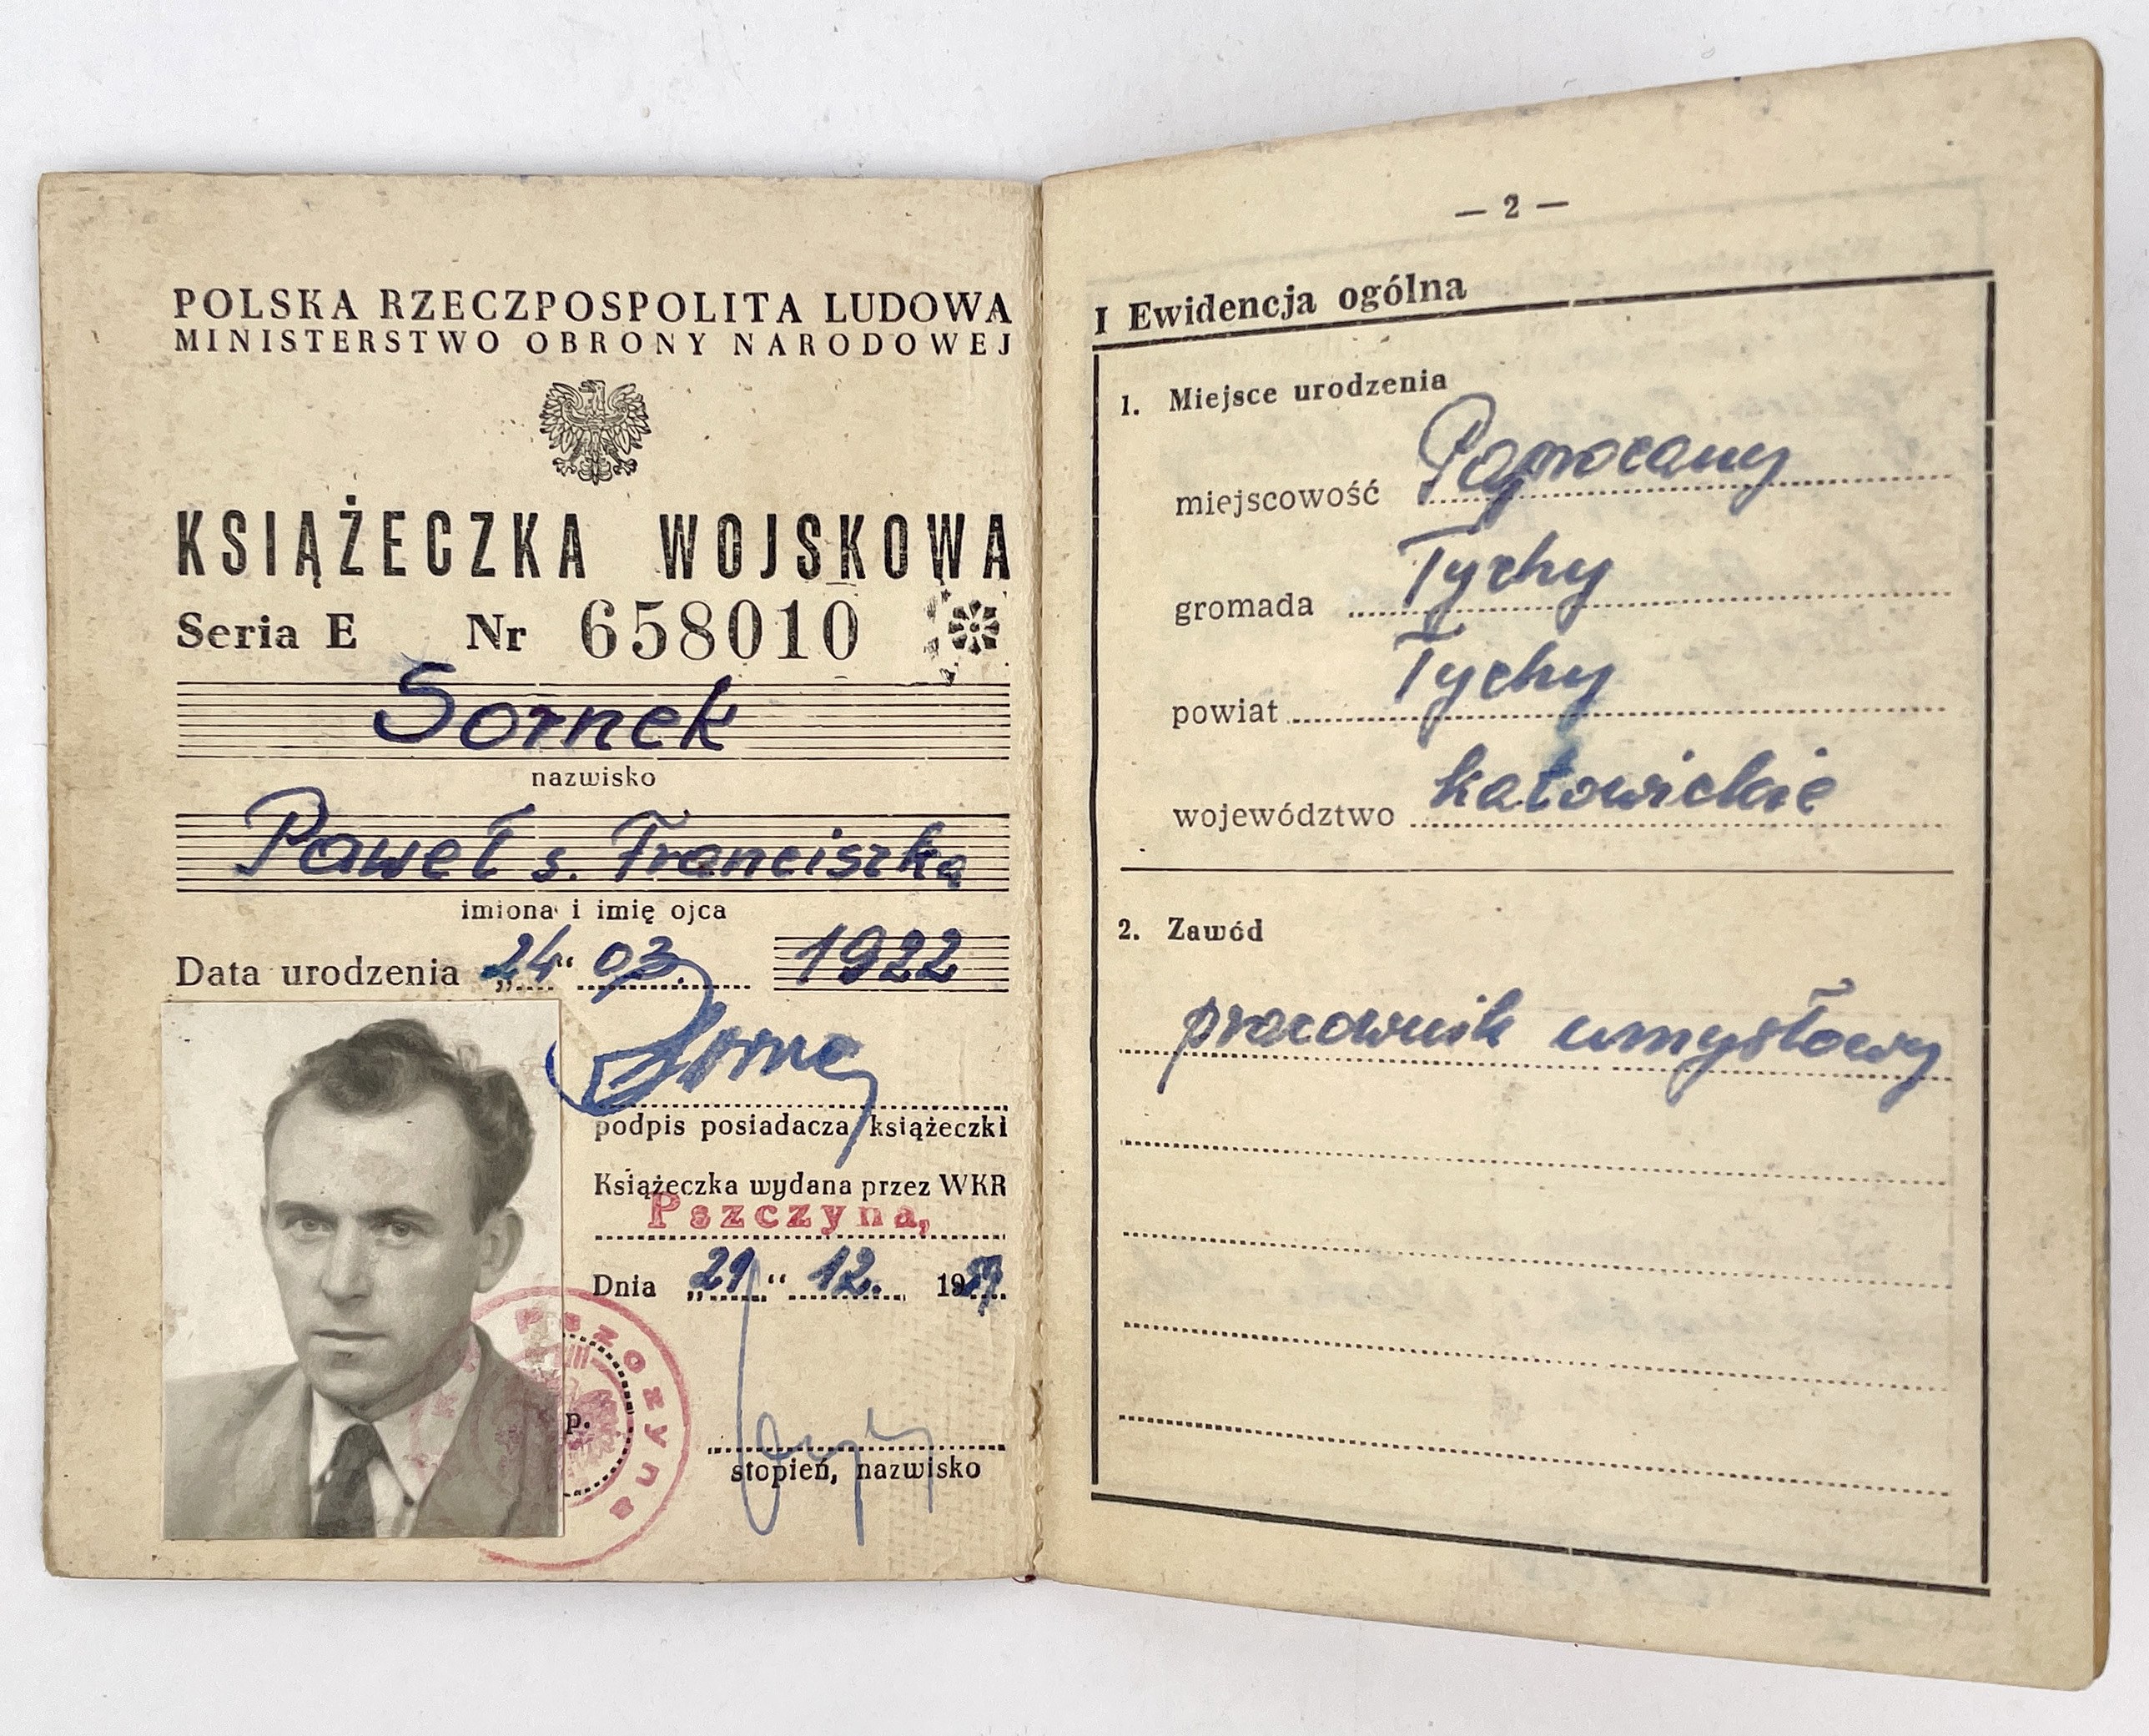 POLSKA RZECZPOSPOLITA LUDOWA
MINISTERSTWO OBRONY NARODOWEJ
KSIĄŻECZKA WOJSKOWA
Seria E Nr 658010
Sornek
nazwisko
Paweł s. Franciszka
imiona i imię ojca
Data urodzenia „24“ 03. 1922
podpis posiadacza książeczki
Książeczka wydana przez WKR
Pszczyna,
Dnia „29“ 12. 1959
p.
Pszczyna
stopień, nazwisko
— 2 —
I Ewidencja ogólna
1. Miejsce urodzenia
miejscowość Paprocany
gromada Tychy
powiat Tychy
województwo katowickie
2. Zawód
pracownik umysłowy